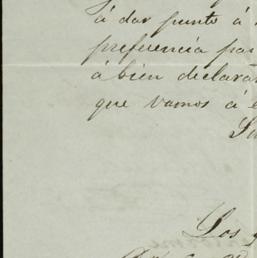 á dar punto á
preferencia par
á bien declarar
que vamos á e
Los